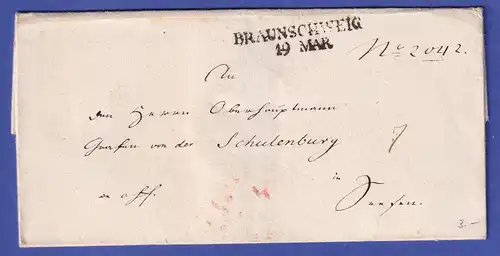 BRAUNSCHWEIG
19 MAR
No 2042.
An
den Herrn Oberhauptmann
Grafen von der Schulenburg
7
in
Seesen.
3.-